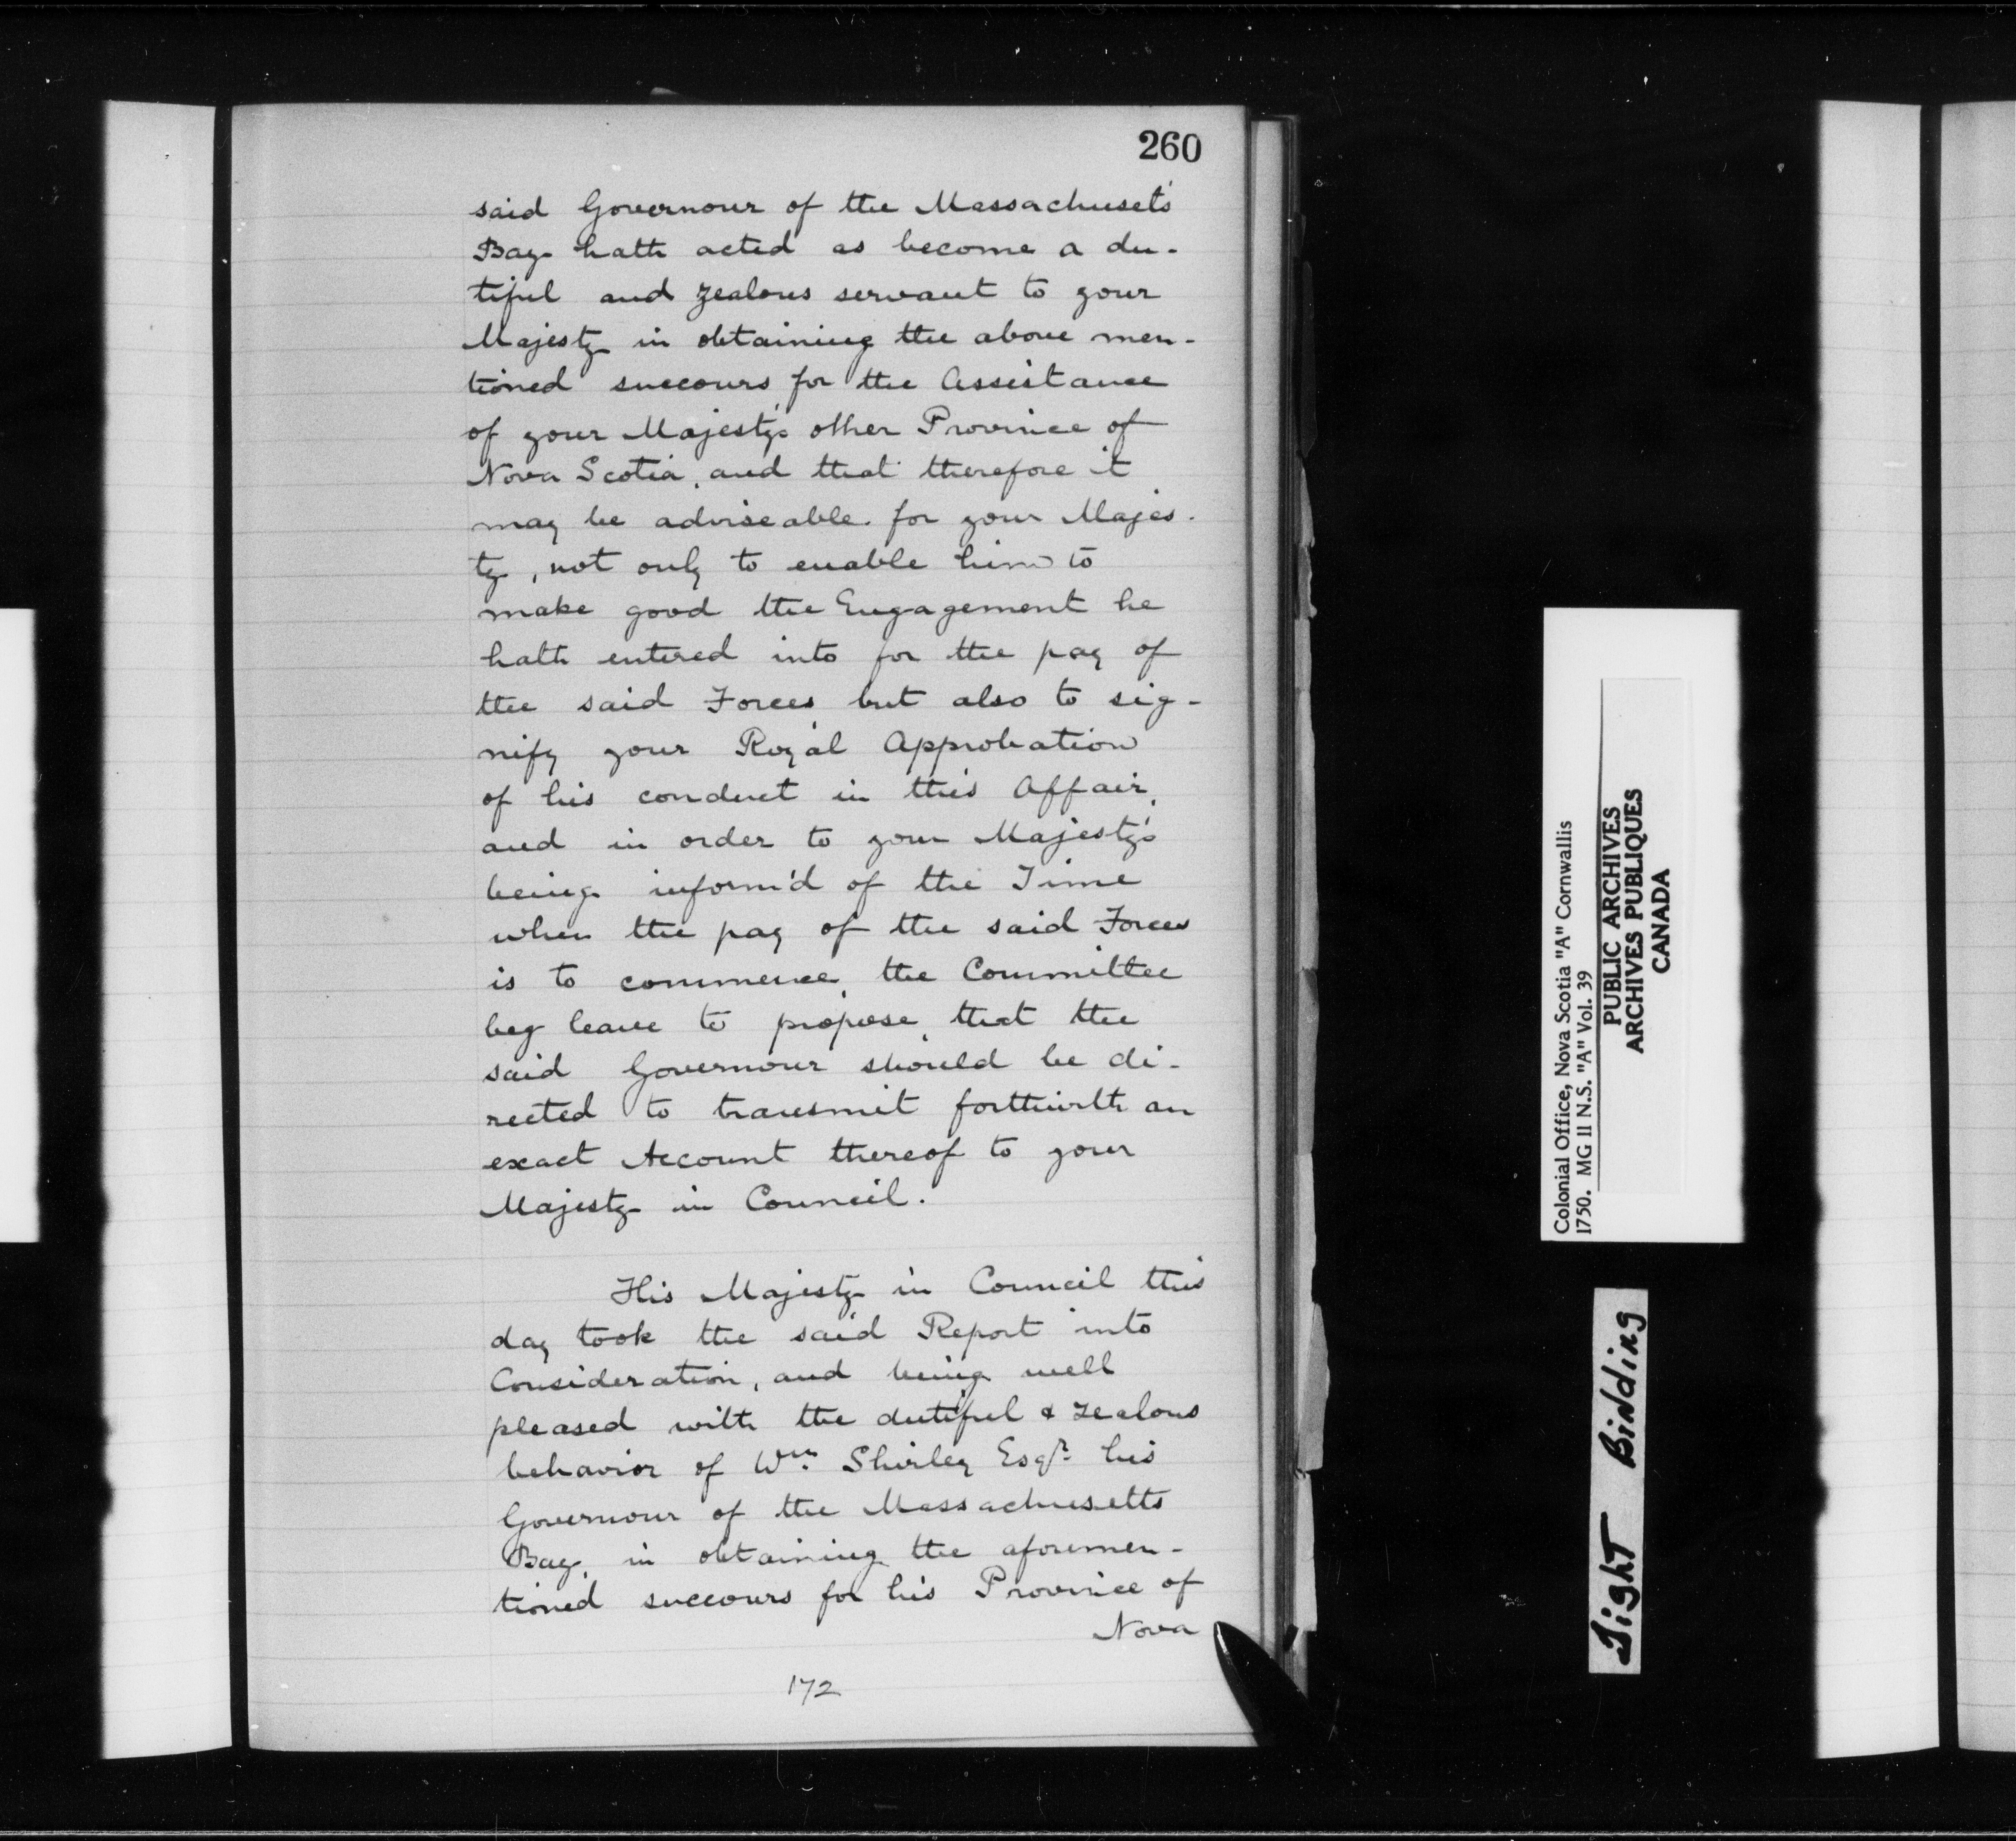 260
said Governour of the Massachuset's
Bay hath acted as become a du-
tiful and zealous servant to your
Majesty in obtaining the above men-
tioned succours for the Assistance
of your Majesty's other Province of
Nova Scotia, and that therefore it
may be adviseable for your Majes-
ty, not only to enable him to
make good the Engagement he
hath entered into for the pay of
the said Forces but also to sig-
nify your Royal Approbation
of his conduct in this Affair,
and in order to your Majesty's
being inform'd of the Time
when the pay of the said Forces
is to commence, the Committee
beg leave to propose, that the
said Governour should be di-
rected to transmit forthwith an
exact Account thereof to your
Majesty in Council.
His Majesty in Council this
day took the said Report into
Consideration, and being well
pleased with the dutiful & zealous
behavior of Wm. Shirley Esqr. his
Governour of the Massachusetts
Bay, in obtaining the aforemen-
tioned succours for his Province of
Nova
172
Colonial Office, Nova Scotia "A" Cornwallis
1750. MG 11 N.S. "A" Vol. 39
PUBLIC ARCHIVES
ARCHIVES PUBLIQUES
CANADA
Tight Binding